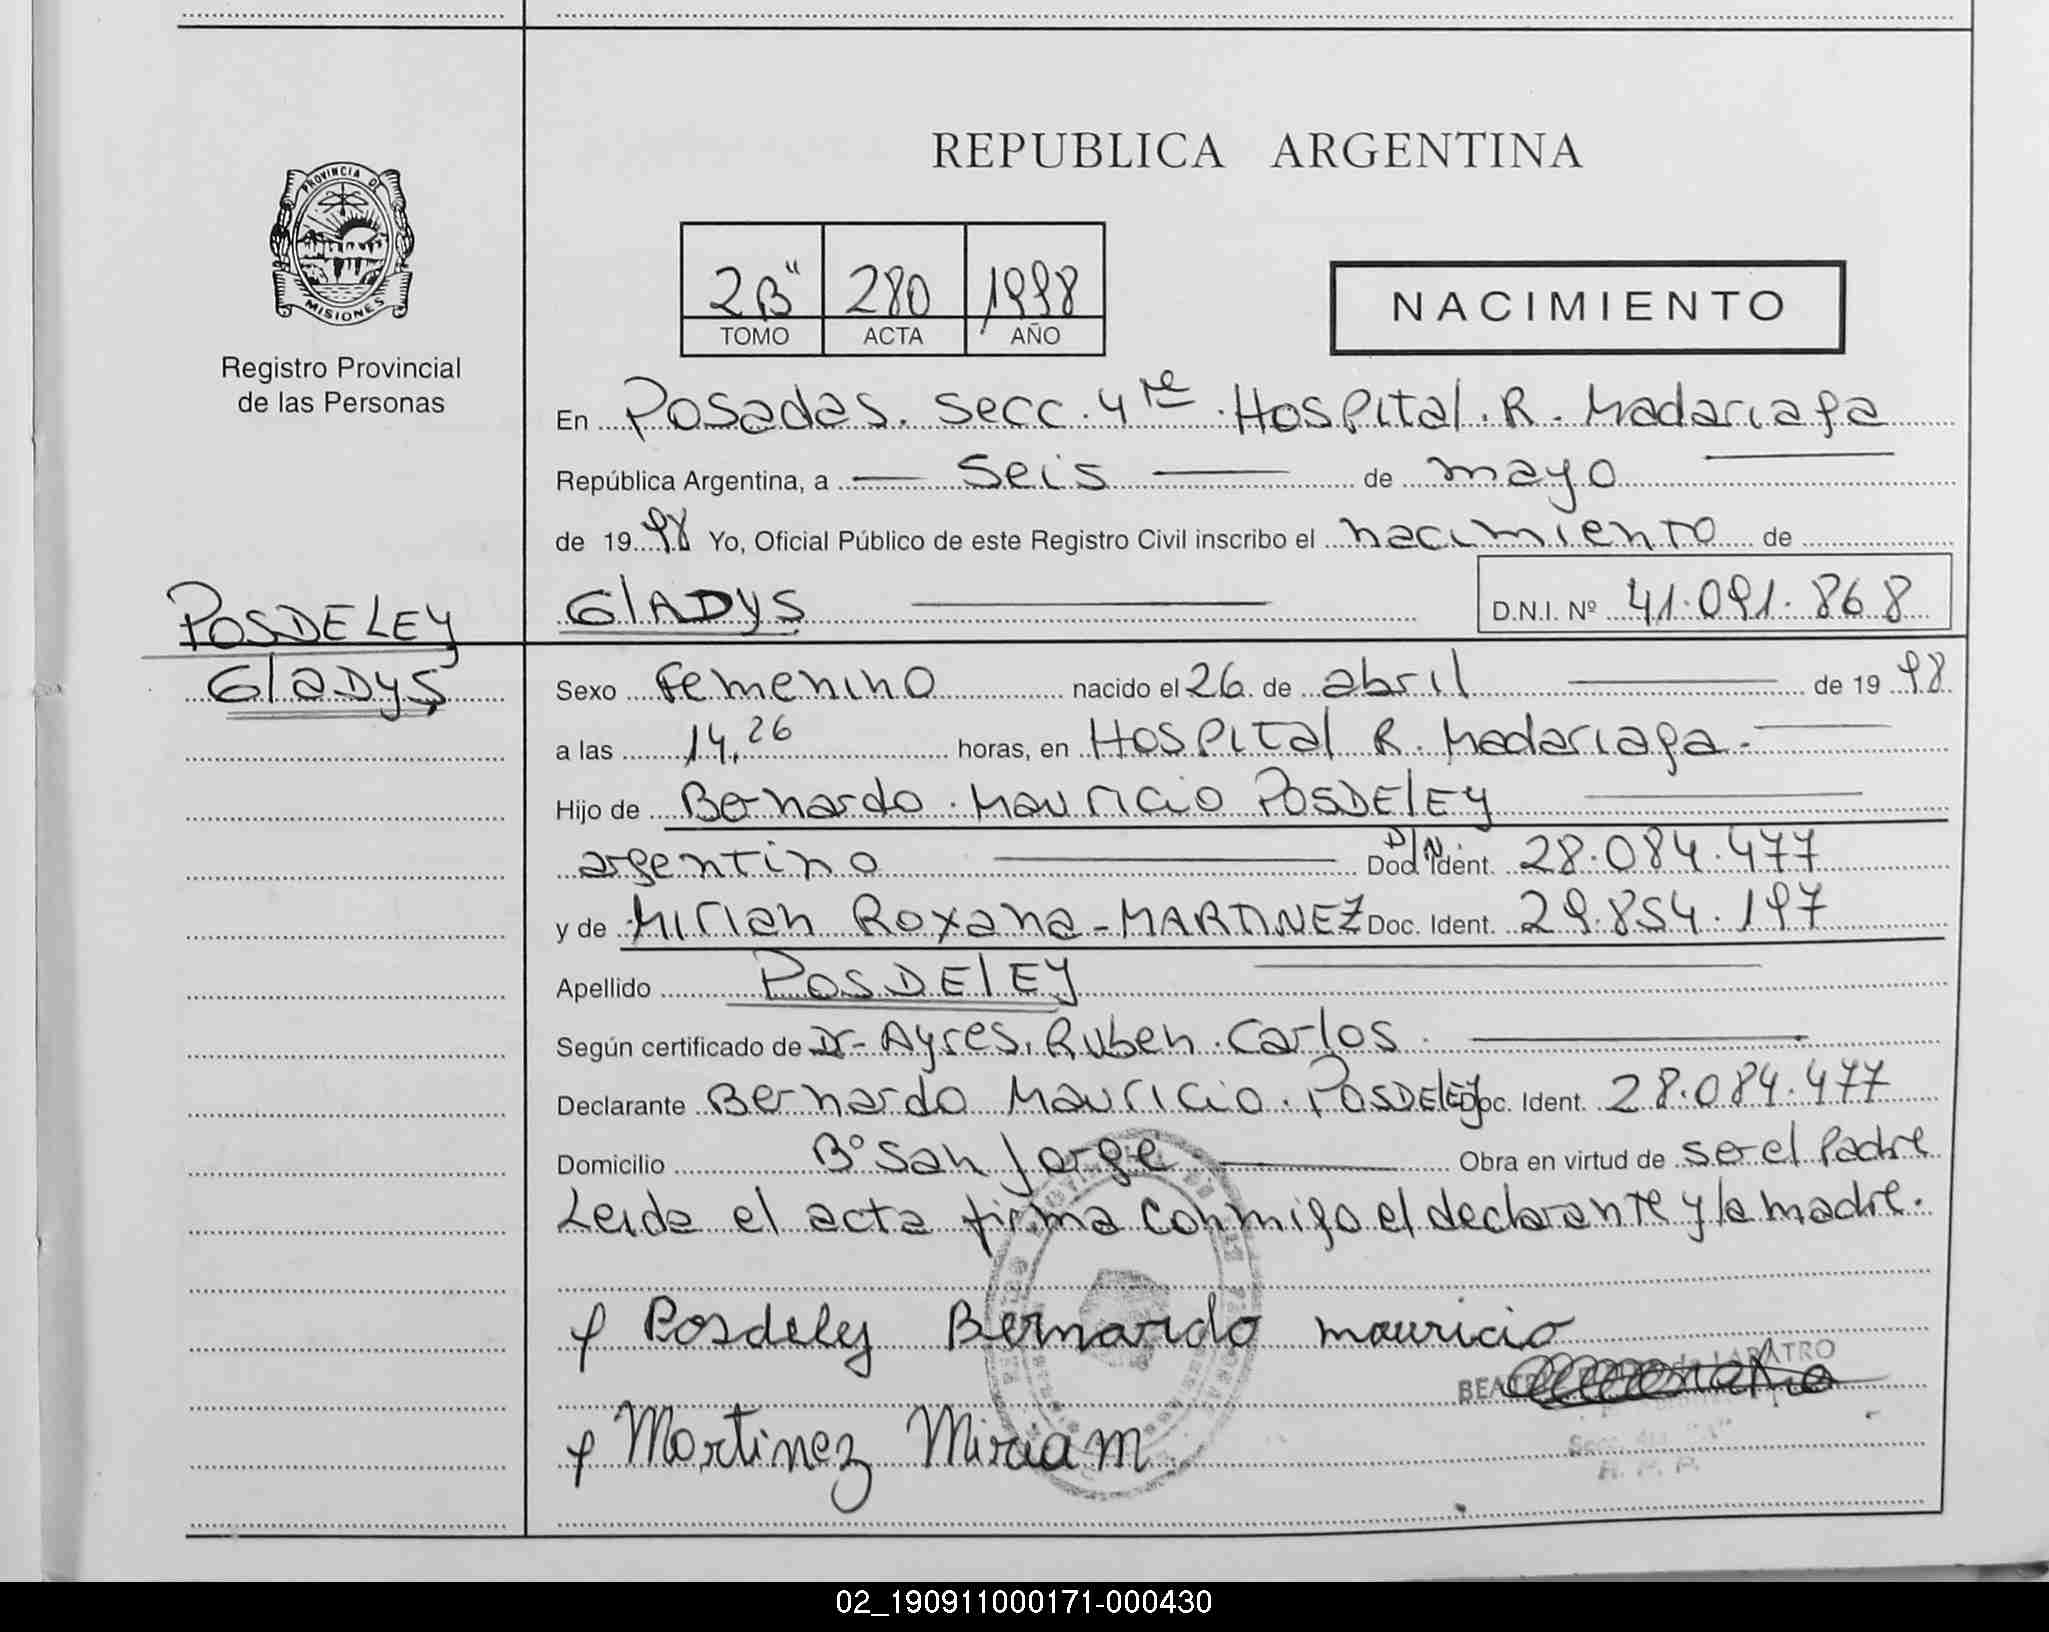 REPUBLICA ARGENTINA
PROVINCIA DE
MISIONES
Registro Provincial
de las Personas
2B" 280 1998
TOMO ACTA AÑO
NACIMIENTO
En Posadas. Secc. 4ta. Hospital. R. Madariaga
República Argentina, a seis de mayo
de 1998 Yo, Oficial Público de este Registro Civil inscribo el nacimiento de
POSDELEY
GlADYS
GlADYS D.N.I. Nº 41.091.868
Sexo femenino nacido el 26 de abril de 1998
a las 14,26 horas, en Hospital R. Madariaga.
Hijo de Bernardo. Mauricio POSDElEY
argentino DNI Doc. Ident. 28.084.477
y de Mirian Roxana - MARTINEZ Doc. Ident. 29.854.197
Apellido POSDElEY
Según certificado de Dr. Ayres. Ruben. Carlos
Declarante Bernardo Mauricio. POSDElEY Doc. Ident. 28.084.477
Domicilio Bº San Jorge Obra en virtud de ser el Padre
Leida el acta firma conmigo el declarante y la madre.
Posdeley Bernardo mauricio
LABATRO
Martinez Miriam
02_190911000171-000430